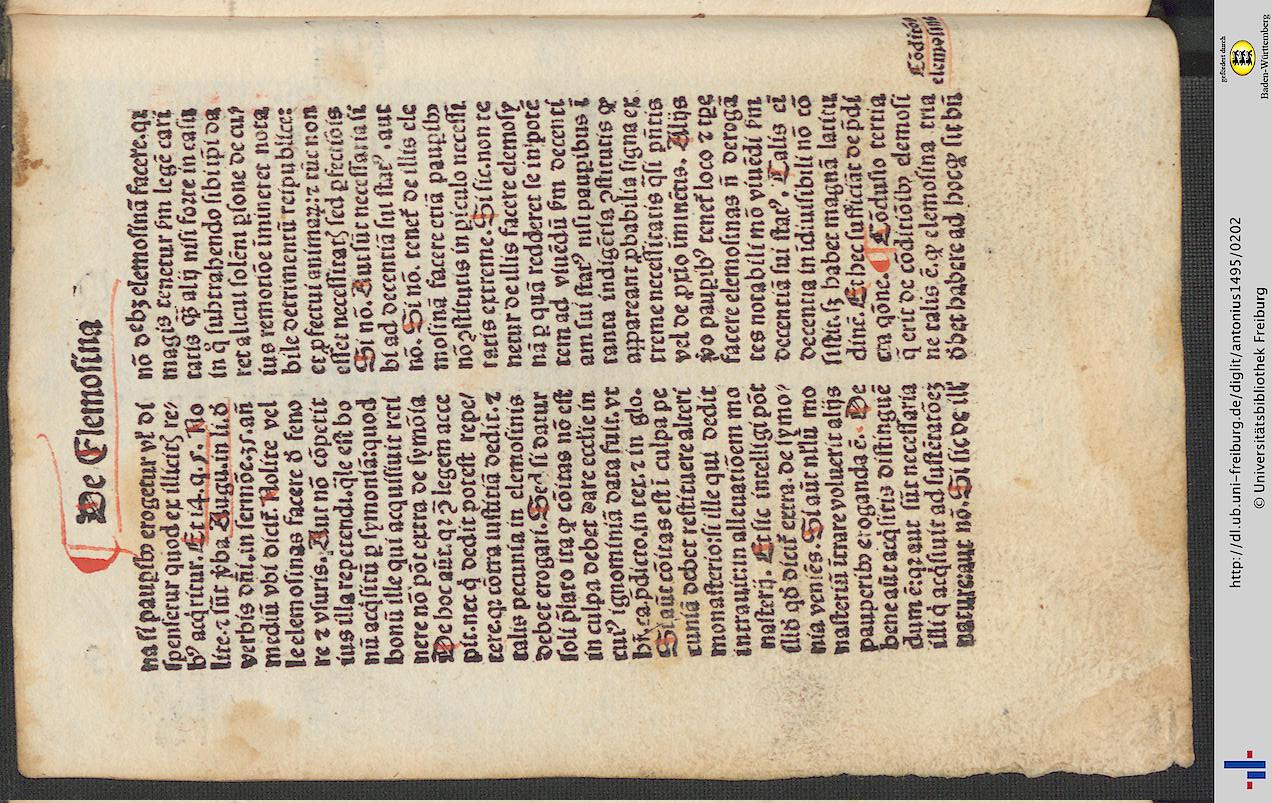 De Elemosina
na si paupibꝰ erogetur vl' di
spensetur quod ex illicitꝭ re
bꝰ acqritur. Et .14. q. 5. No
lite. ⁊ sūt ꝟba Augu. in li. ď
verbis dn̄i. in sermōe. 35. añ
mediū vbi dicit̄. Nolite vel
le elemosinas facere ď feno
re ⁊ vsuris. Aut nō cōpetit
ius illa repetendi. q̄le est bo
nū acq̄sitū ꝑ symoniā: quod
bonū ille qui acquisiuit reti
nere nō pōt extra de symōia
De hoc aūt. qꝛ ⁊ lege nā ac ce
pit: nec q̇ dedit potest repe/
tere. qꝛ cōtra iustitiā dedit. ⁊
talis pecunia in elemosinis
debet erogari. Sed si datur
soli p̄lato ita q̇ cōitas nō est
in culpa debet dare ecclie in
cuiꝰ ignominiā data fuit. vt
br̄ ea. pdicto. in ter. ⁊ in glo.
Si aūt cōitas est ī culpa pe
cuniā debet restituere alteri
monasterio: si ille qui dedit
intrauit: in alleuatōem mo
nasterij. Et sic intelligi pōt
illd̄ qd̄ dicit̄ extra. de symo
nia. veniēs. Si aūt nl'lū mo
nasteriū itrare voluerit alijs
pauperibꝰ eroganda ē. De
bene aūt acq̄sitis distinguē
dum ē: qꝛ aut sūt necessaria
illi q̇ acq̄siuit ad sustētatōeꝫ
nature: aut nō. Si sic de ill'
nō debꝫ elemosinā facere. qꝛ
magis tenetur ẜm legē cari
tatis q̄ȝ alij nisi forte in casu
in q̊ subtrahendo sibi ip̄i da
ret alicui solēni ꝑsone de cuiꝰ
ius remotiōe īmineret nota
bile detrimentū reipublice:
et ꝓfectui animaꝝ: ⁊ tūc non
esset necessitatꝭ sed ꝑfectiōis
Si nō. Aut sūt necessaria si
bi ad decentiā sui statꝰ. aut
nō. Si nō. tenet̄ de illis ele
mosinā facere etiā paupibꝰ
nō ꝯstitutis in ꝑiculo necessi
tatis extreme. Si sic. non te
netur de illis facere elemosy
nā ꝑ quā redderet se inpote
tem ad viuēdū ẜm decenti
am sui statꝰ nisi paupibus ī
tanta indigētia ꝯstitutis ꝙ
appareant ꝓbabilia signa ex
treme necessitatis q̄si p̄ntis
vel de ꝓxīo imīnētis. Alijs
ꝟo paupibꝰ tenet̄ loco ⁊ tꝑe
facere elemosinas ñ deroga
tes notabili mō viuēdi ẜm
decentiā sui statꝰ. Talis eī
decentia in idiuisibili nō cō
sistit: sꝫ habet magnā latitu
dinē. Et hec sufficiāt de p̄di
cta q̄one. Cōclusio tertia
q̄ erit de cōditiōibꝰ elemosi
ne talis ē. ꝙ elemosina tria
dꝫbet habere ad hoc ꝙ sit bn̄
Cōditōes
elemosine
gefördert durch
Baden-Württemberg
http://dl.ub.uni-freiburg.de/diglit/antonius1495/0202
© Universitätsbibliothek Freiburg